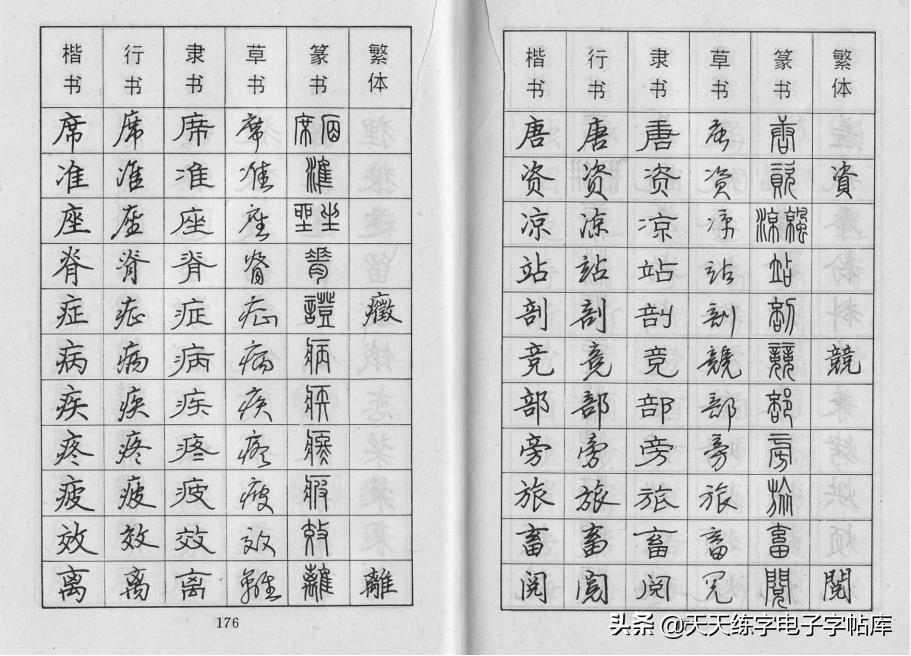 楷书 行书 隶书 草书 篆书 繁体
席 席 席 席 席
准 准 准 准 准
座 座 座 座 座
脊 脊 脊 脊 脊
症 症 症 症 證 癥
病 病 病 病 病
疾 疾 疾 疾 疾
疼 疼 疼 疼 疼
疲 疲 疲 疲 疲
效 效 效 效 效
离 离 离 離 離 離
176
楷书 行书 隶书 草书 篆书 繁体
唐 唐 唐 唐 唐
资 资 资 资 資 資
凉 凉 凉 凉 凉
站 站 站 站 站
剖 剖 剖 剖 剖
竞 竞 竞 競 競 競
部 部 部 部 部
旁 旁 旁 旁 旁
旅 旅 旅 旅 旅
畜 畜 畜 畜 畜
阅 阅 阅 阅 閱 閱
头条 @天天练字电子字帖库